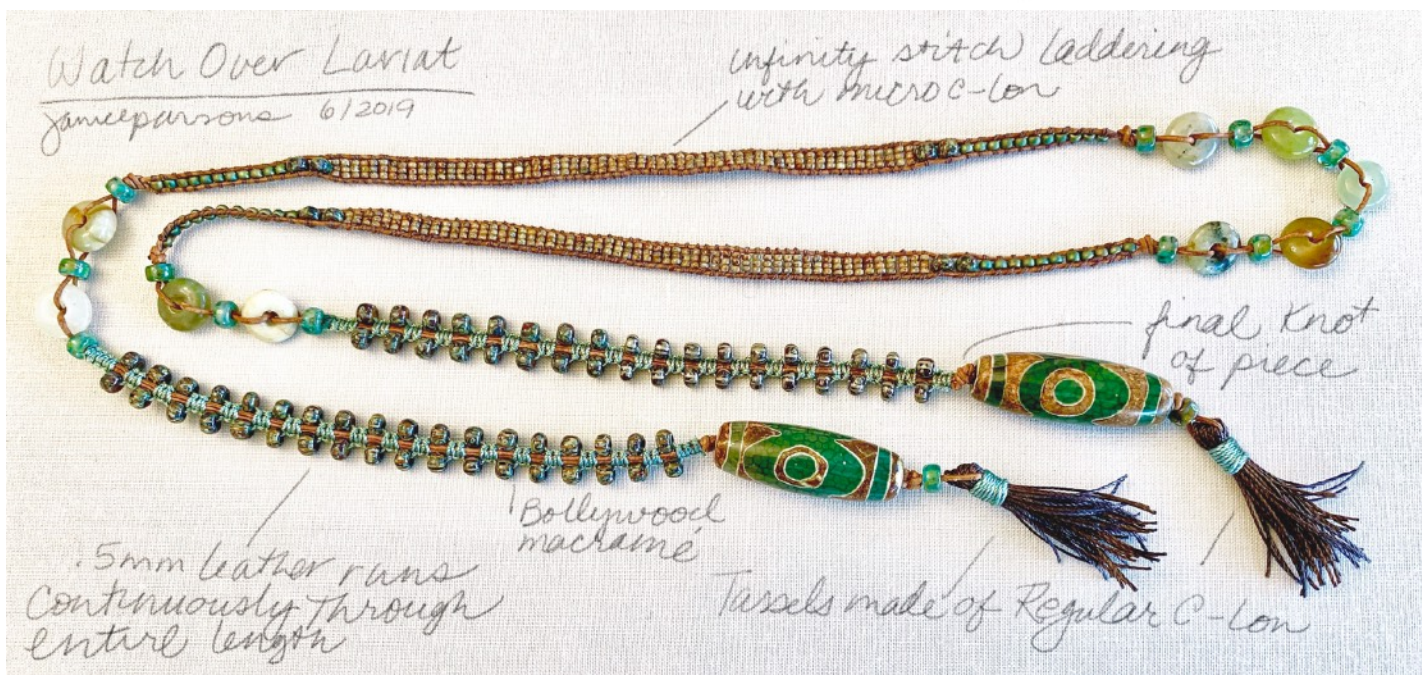 Watch Over Lariat
janiceparsons 6/2019
infinity stitch laddering
with micro C-Lon
final Knot
of piece
Bollywood
macramé
.5mm leather runs
Continuously through
entire length
Tassels made of Regular C-Lon